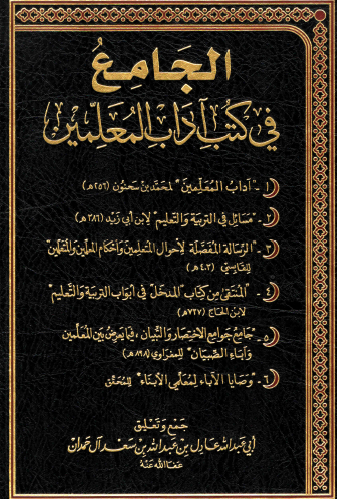 الجامع
في كتب آداب المعلمين
١ - "آداب المعلمين" لمحمد بن سحنون (٢٥٦ھ)
٢ - "مسائل في التربية والتعليم" لابن أبي زيد (٣٨٦ھ)
٣ - "الرسالة المفصلة لأحوال المتعلمين وأحكام المعلمين والمتعلمين"
للقابسي (٤٠٣ھ)
٤ - "المنتقى من كتاب "المدخل في أبواب التربية والتعليم"
لابن الحاج (٧٣٧ھ)
٥ - "جامع جوامع الاختصار والتبيان، فيما يعرض بين المعلمين
وآباء الصبيان" للمغراوي (٨٩٨ھ)
٦ - "وصايا الآباء لمعلمي الأبناء" للمحقق
جمع وتعليق
أبي عبدالله عادل بن عبدالله بن سعد آل حمدان
عفا الله عنه